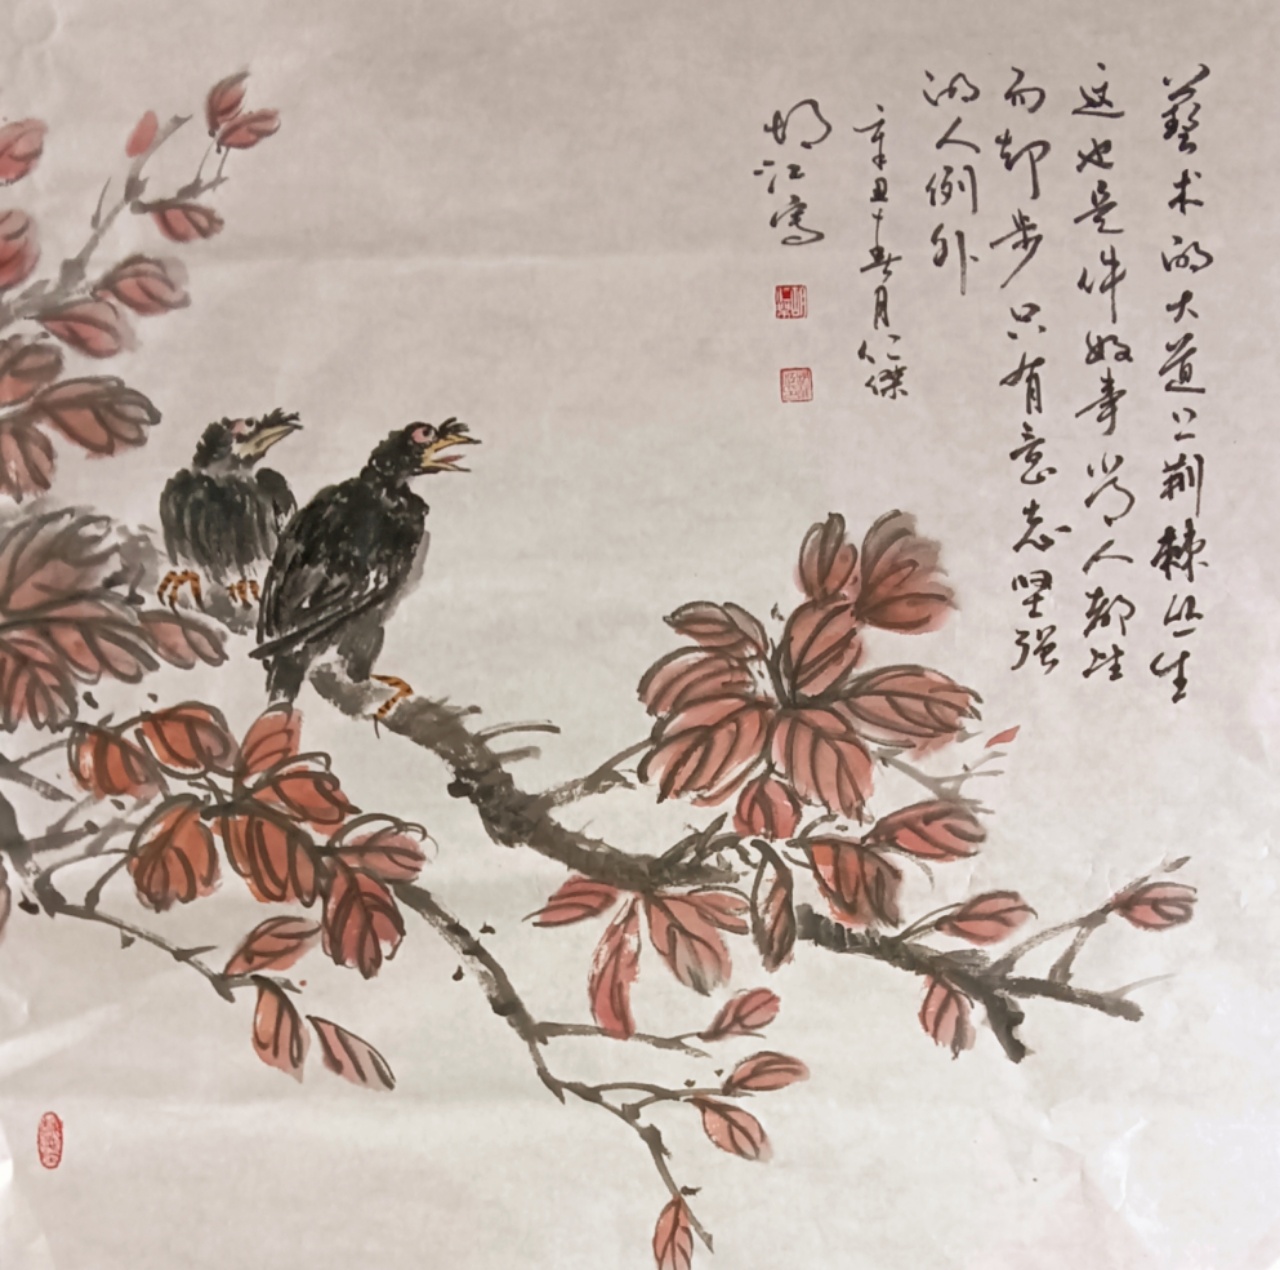 藝术的大道上荆棘丛生
这也是件好事常人都望
而却步只有意志坚强
的人例外
辛丑春月仁傑
胡江寫